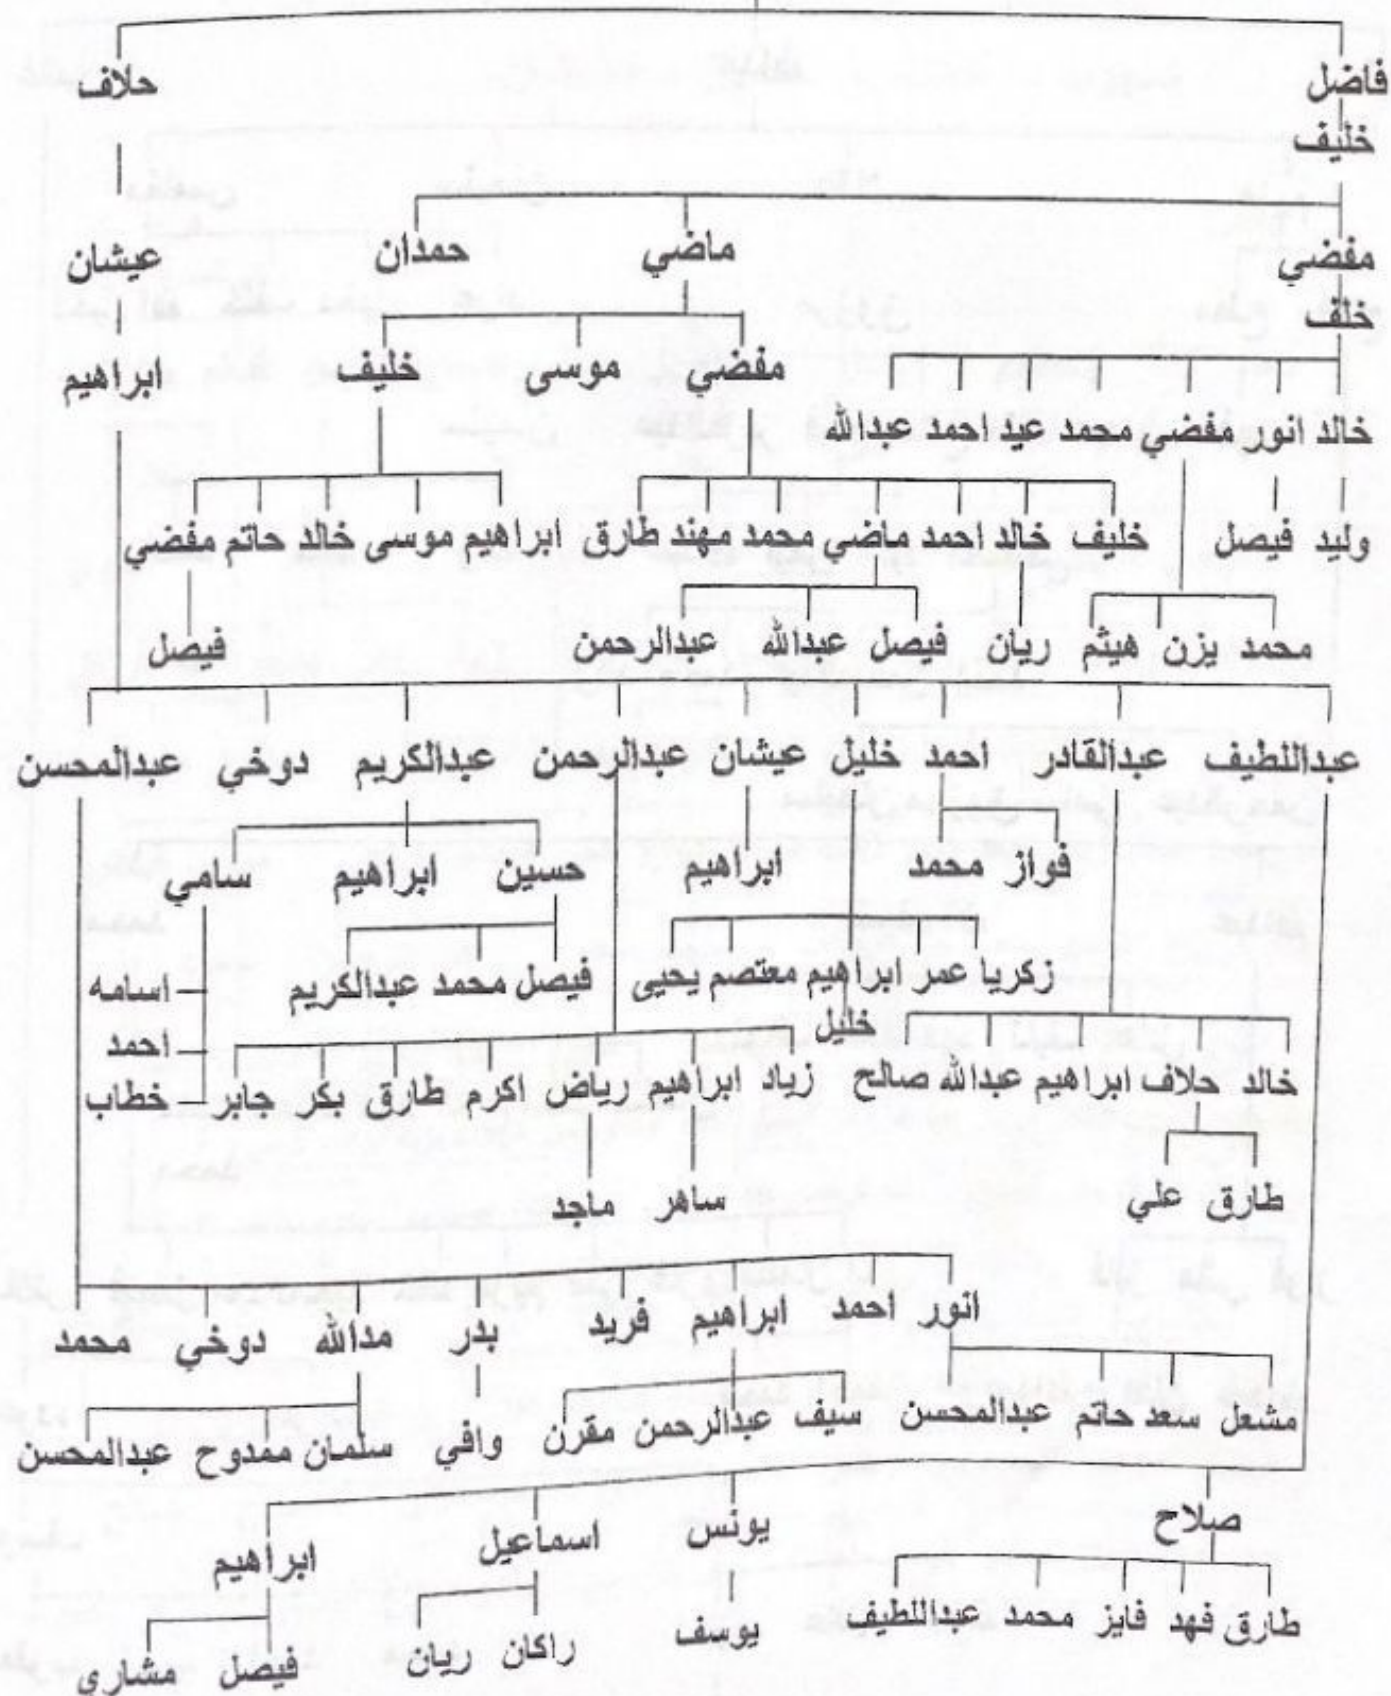 فاضل حلاف
خليف
مفضي ماضي حمدان عيشان
خلف
مفضي موسى خليف ابراهيم
خالد انور مفضي محمد عيد احمد عبدالله
وليد فيصل خليف خالد احمد ماضي محمد مهند طارق ابراهيم موسى خالد حاتم مفضي
محمد يزن هيثم ريان فيصل عبدالله عبدالرحمن فيصل
عبداللطيف عبدالقادر احمد خليل عيشان عبدالرحمن عبدالكريم دوخي عبدالمحسن
فواز محمد ابراهيم حسين ابراهيم سامي
زكريا عمر ابراهيم معتصم يحيى فيصل محمد عبدالكريم اسامه
خليل
احمد
خالد حلاف ابراهيم عبدالله صالح زياد ابراهيم رياض اكرم طارق بكر جابر خطاب
طارق علي ساهر ماجد
انور احمد ابراهيم فريد بدر مدالله دوخي محمد
مشعل سعد حاتم عبدالمحسن سيف عبدالرحمن مقرن وافي سلمان ممدوح عبدالمحسن
صلاح يونس اسماعيل ابراهيم
طارق فهد فايز محمد عبداللطيف يوسف راكان ريان فيصل مشاري